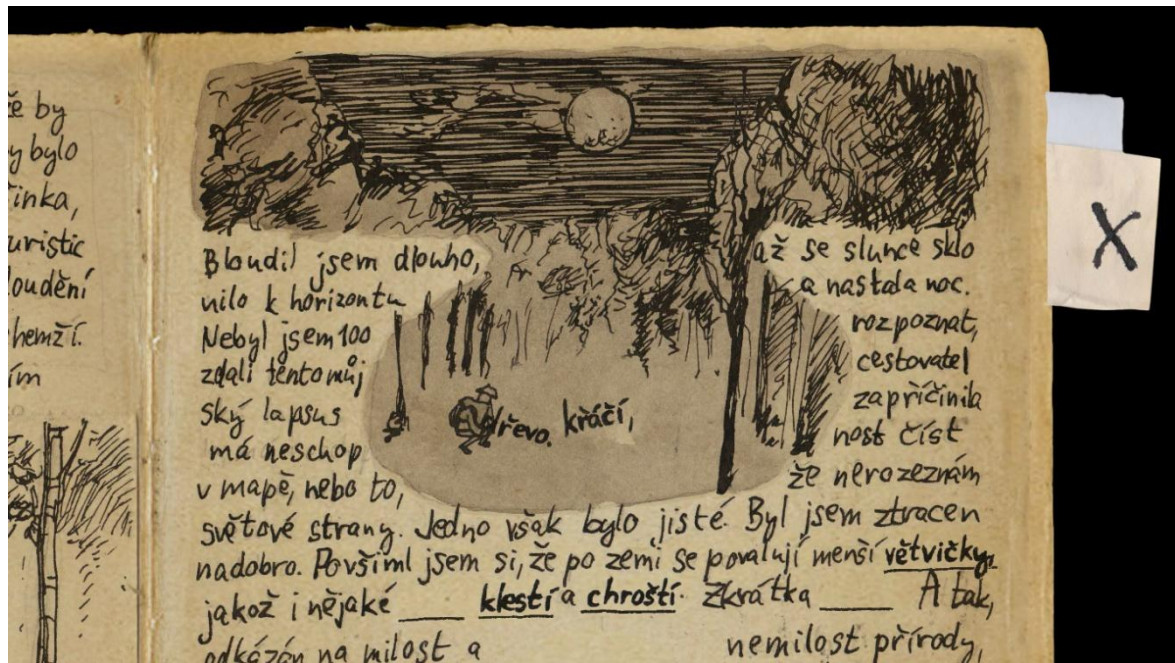 by
bylo
Bloudil jsem dlouho, až se slunce sklo
nilo k horizontu a nastala noc.
Nebyl jsem 100 rozpoznat,
zdali tento můj cestovatel
ský lapsus zapříčinila
dřevo. kráčí,
má neschop nost číst
v mapě, nebo to, že nerozeznám
světové strany. Jedno však bylo jisté. Byl jsem ztracen
nadobro. Povšiml jsem si, že po zemi se povalují menší větvičky,
jakož i nějaké ____ klestí a chroští. Zkrátka ____ A tak,
odkázán na milost a nemilost přírody,
X